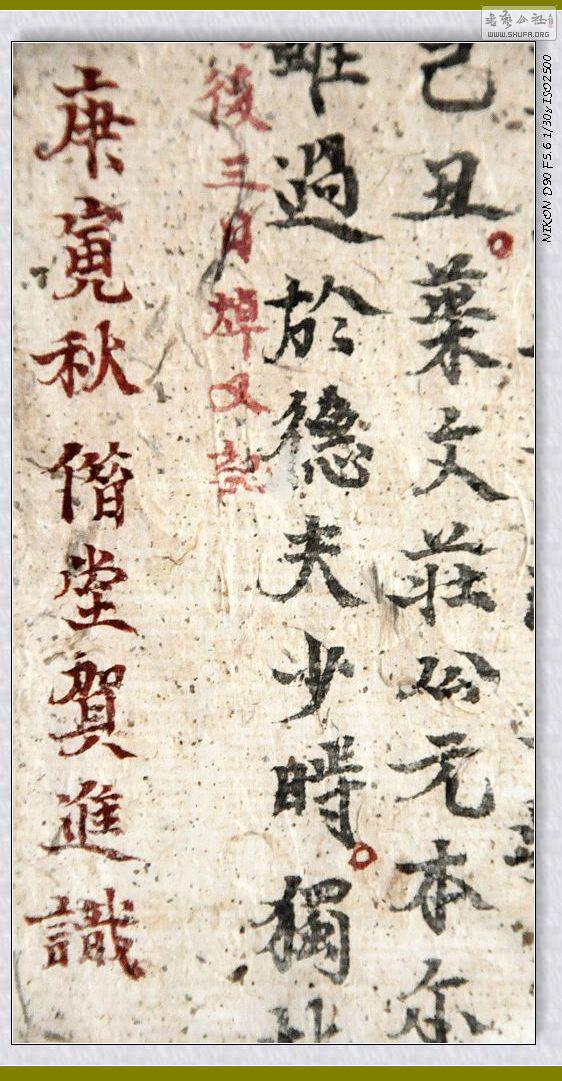 己丑葉文莊公元本尔
雖過於德夫少時獨
後三月焯又記
庚寅秋偕堂賀進識
書藝公社
WWW.SHUFA.ORG
NIKON D90 F5.6 1/30s ISO2500